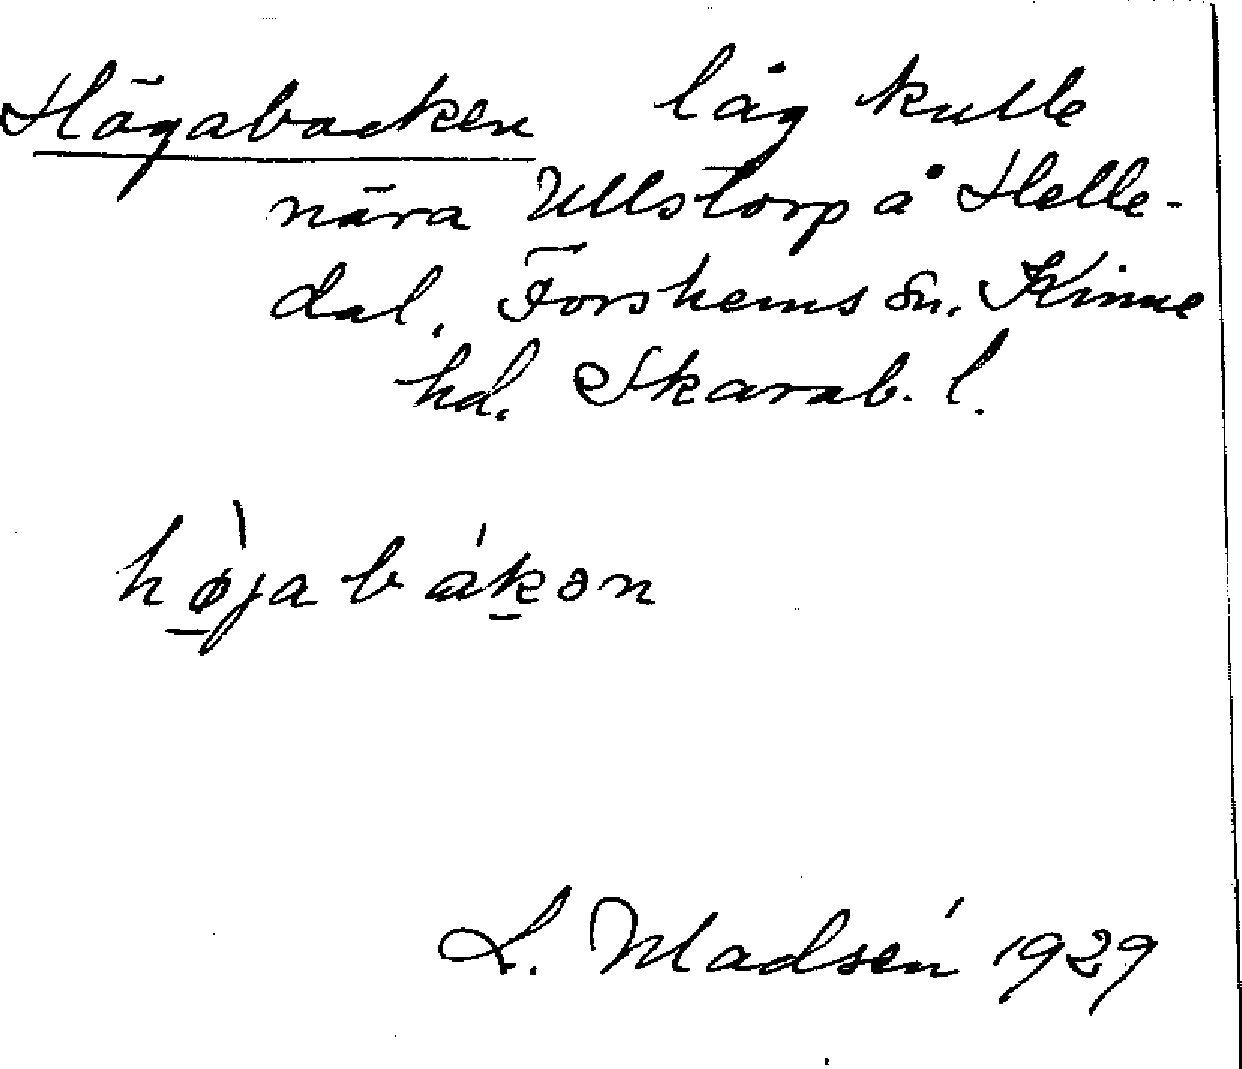 Högabacken låg kulle
nära Ullstorp å Helle-
dal, Forshems sn. Kinne
hd. Skarab. l.
hø̱̀jabák̠ən
L. Madsén 1929